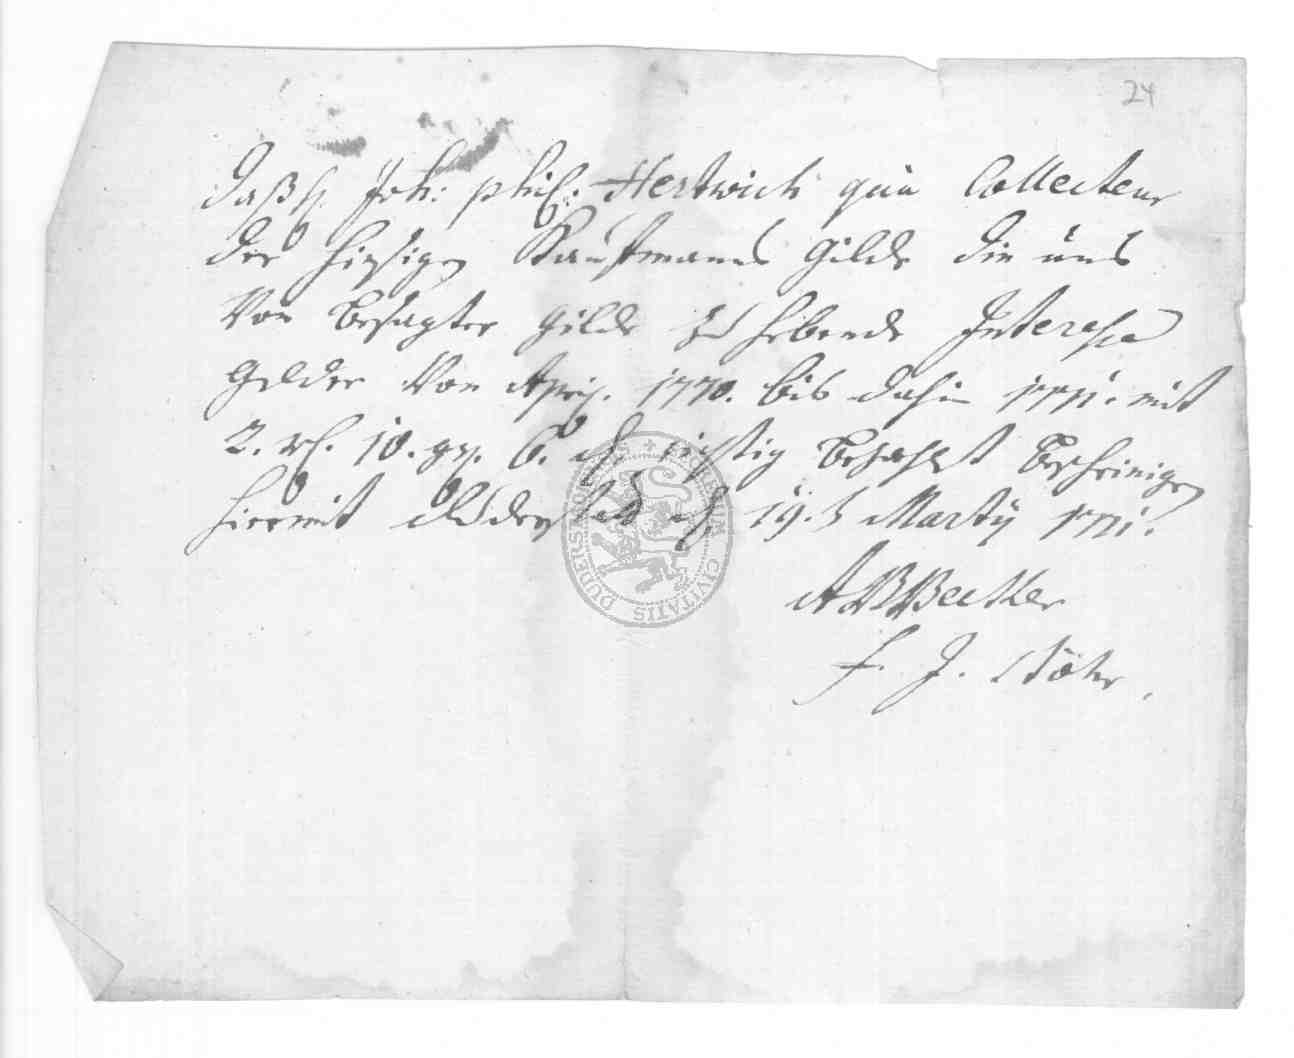 24
daß H. Joh: Phil: Hertwich qua Collecteur
der hiesigen Kauffmanns Gilde die uns
Von besagter Gilde zu hebende Interesse
Gelder Von April. 1770. bis dahin 1771. mit
2. rth. 10. ggr. 6. d richtig bezahlt bescheinigen
hiermit Duderstadt d. 19. Martÿ 1771.
Becker
F. J.
DUDERSTADENSIS CIVITATIS